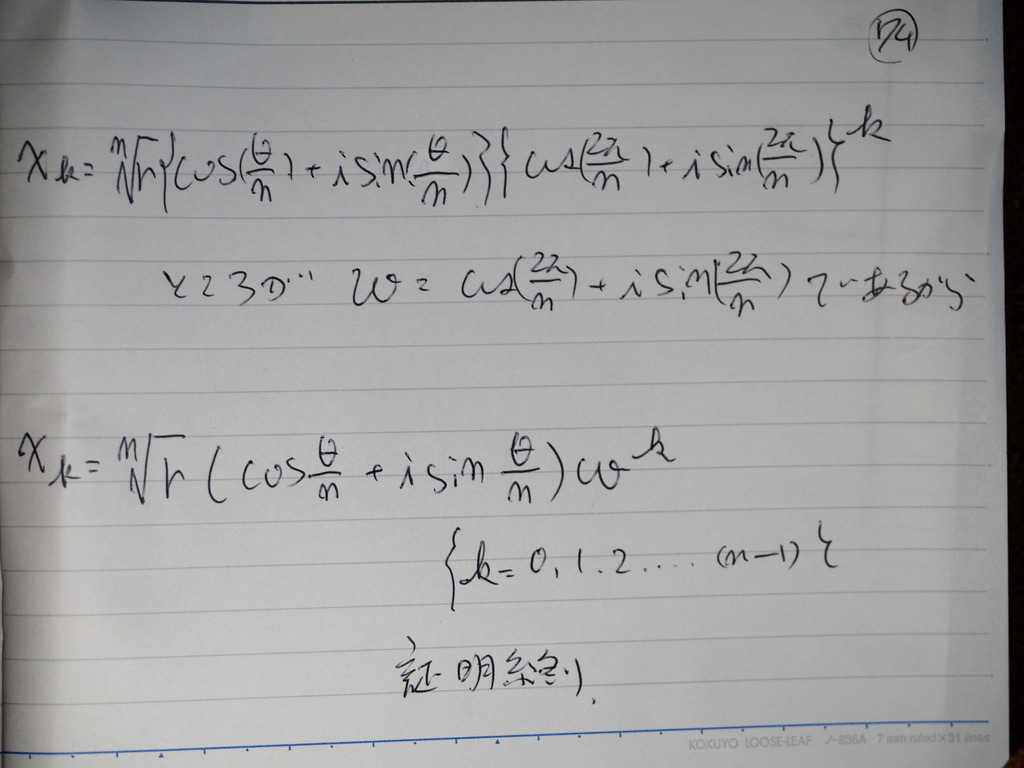 174
x_k = ⁿ√r {cos(θ/n) + i sin(θ/n)} {cos(2π/n) + i sin(2π/n)}^k
ところが w = cos(2π/n) + i sin(2π/n) であるから
x_k = ⁿ√r (cos θ/n + i sin θ/n) w^k
{k = 0, 1. 2 .... (n-1)}
証明終り.
KOKUYO LOOSE-LEAF ノ-836A 7 mm ruled×31 lines